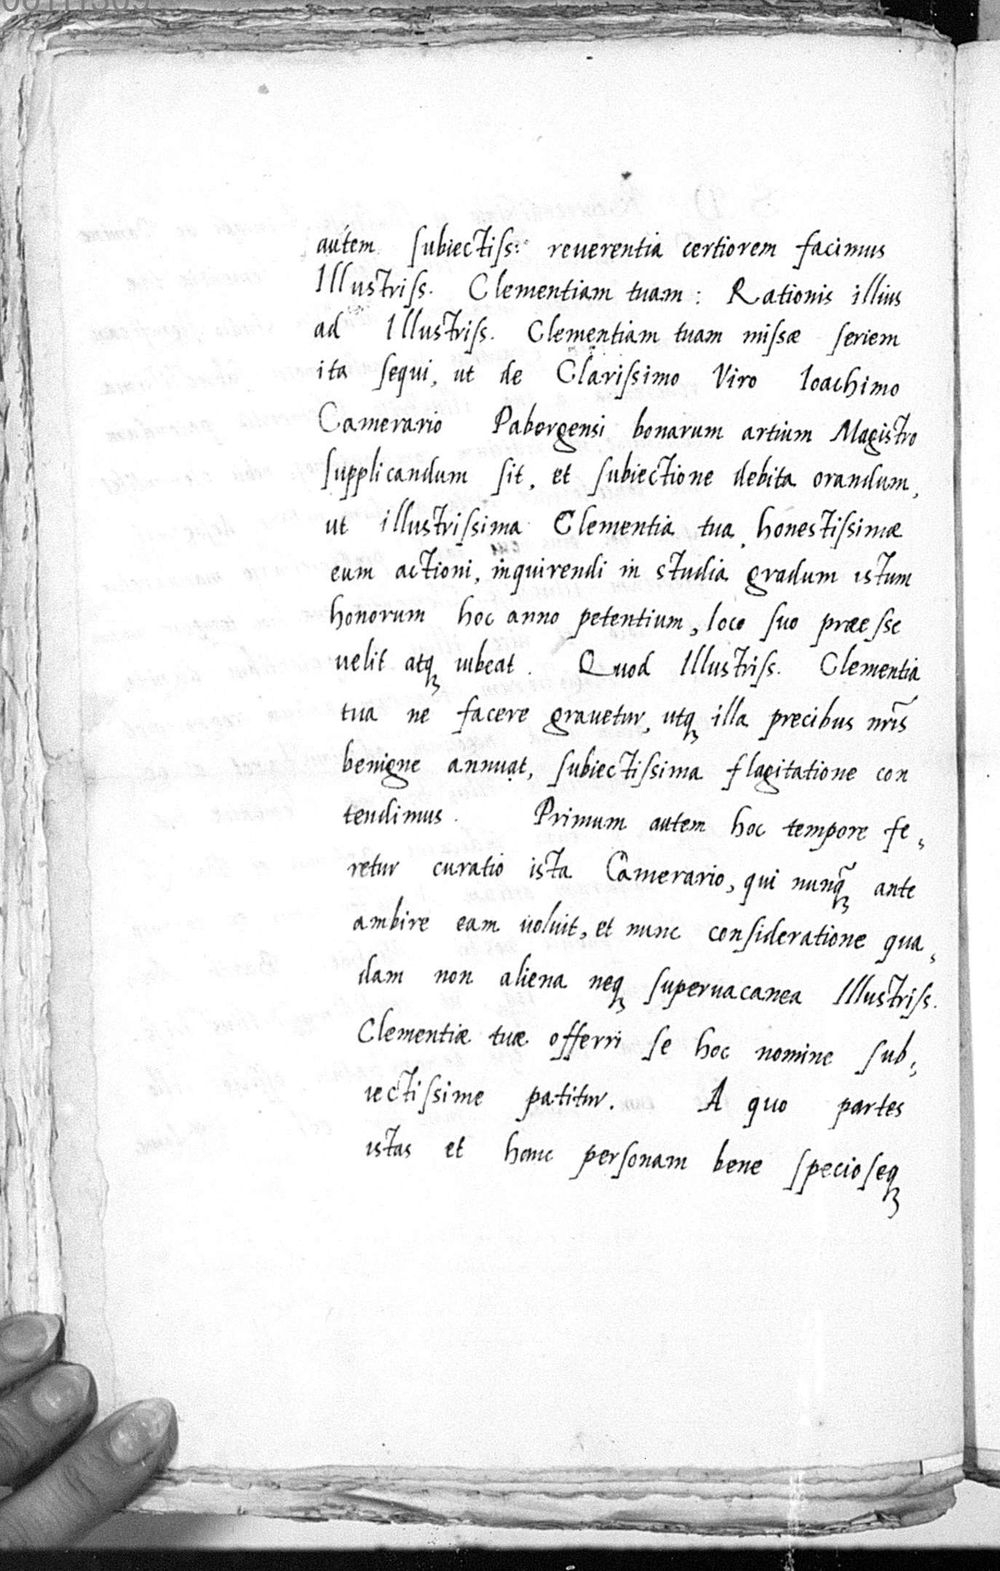 autem subiectiss: reuerentia certiorem facimus
Illustriss. Clementiam tuam: Rationis illius
ad Illustriss. Clementiam tuam missæ seriem
ita sequi, ut de Clarissimo Viro Ioachimo
Camerario Pabergensi bonarum artium Magistro
supplicandum sit, et subiectione debita orandum,
ut illustrissima Clementia tua honestissimæ
eum actioni, inquirendi in studia gradum istum
honorum hoc anno petentium, loco suo præesse
uelit atq iubeat. Quod Illustriss. Clementia
tua ne facere grauetur, utq illa precibus nr̄is
benigne annuat, subiectissima flagitatione con
tendimus. Primum autem hoc tempore fe,
retur curatio ista Camerario, qui nunq̄ ante
ambire eam uoluit, et nunc consideratione qua,
dam non aliena neq superuacanea Illustriss.
Clementiæ tuæ offerri se hoc nomine sub,
iectissime patitur. A quo partes
istas et hanc personam bene specioseq